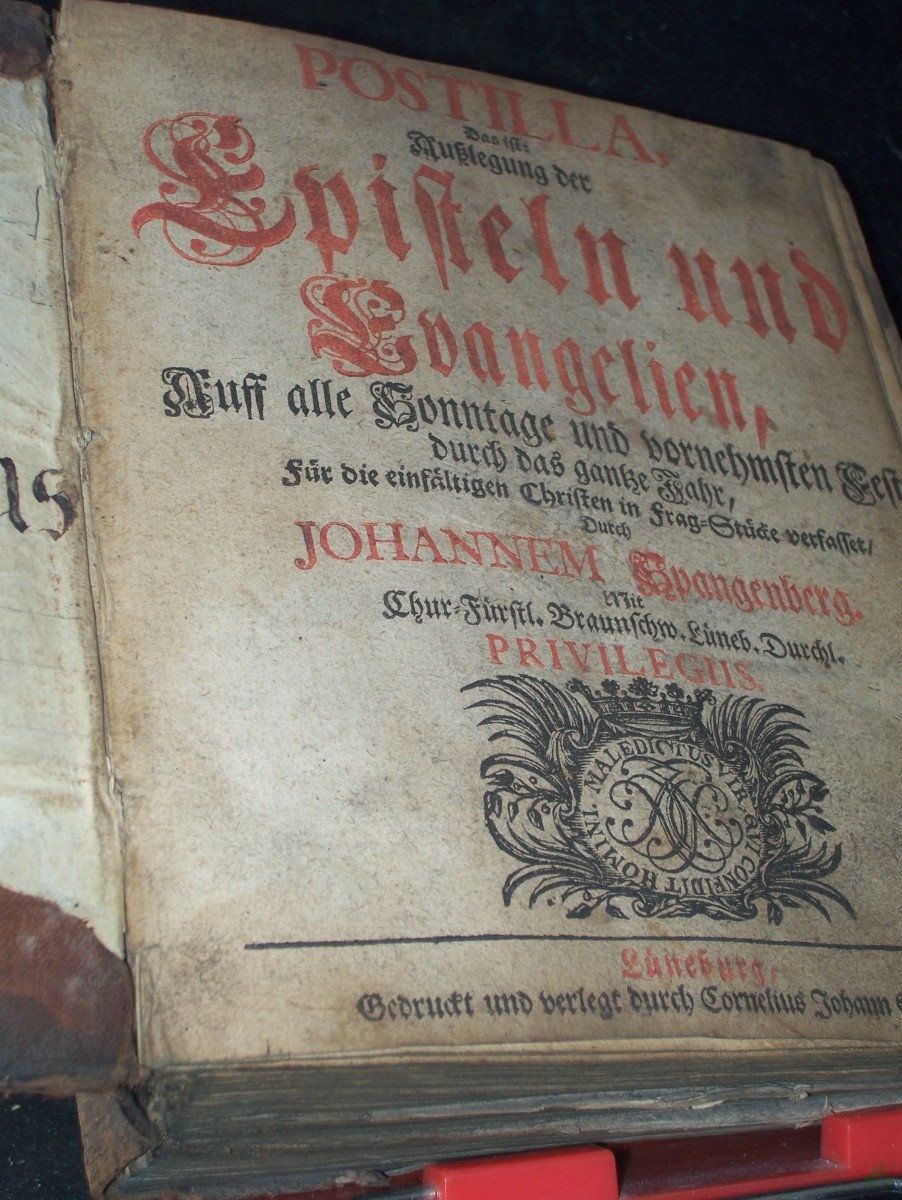 POSTILLA,
Das ist:
Außlegung der
Episteln und
Evangelien,
Auff alle Sonntage und vornehmsten Fest
durch das gantze Jahr,
Für die einfältigen Christen in Frag-Stücke verfasset/
Durch
JOHANNEM Spangenberg.
Mit
Chur-Fürstl. Braunschw. Lüneb. Durchl.
PRIVILEGIIS.
MALEDICTUS VIR QUI CONFIDIT HOMINI.
Lüneburg,
Gedruckt und verlegt durch Cornelius Johann